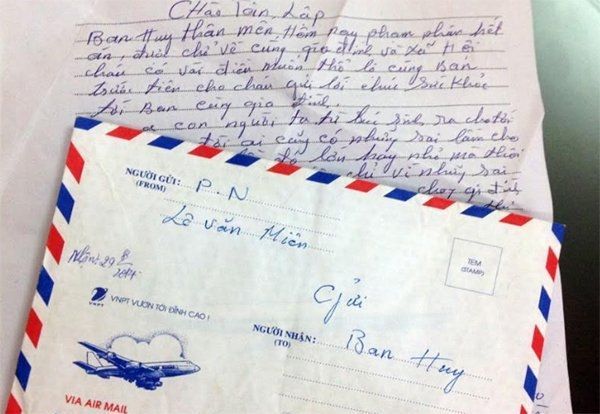 Chào Tân Lập
Ban Huy thân mến, Hôm nay phạm nhân hết
án, được chở về cùng gia đình và xã Hội
cháu có vài điều muốn thổ lộ cùng Ban
trước tiên cho cháu gửi lời chúc sức Khỏe
tới Ban cùng gia đình.
con người ta từ lúc sinh ra cho tới
ai cũng có những sai lầm cho
lớn hay nhỏ mà thôi
chỉ vì những sai
gia đình
NGƯỜI GỬI: P.N
(FROM)
Lê Văn Miên
TEM
(STAMP)
Nhận: 29 8
2014
VNPT
VNPT VƯƠN TỚI ĐỈNH CAO !
Gửi
NGƯỜI NHẬN: Ban Huy
(TO)
VIA AIR MAIL